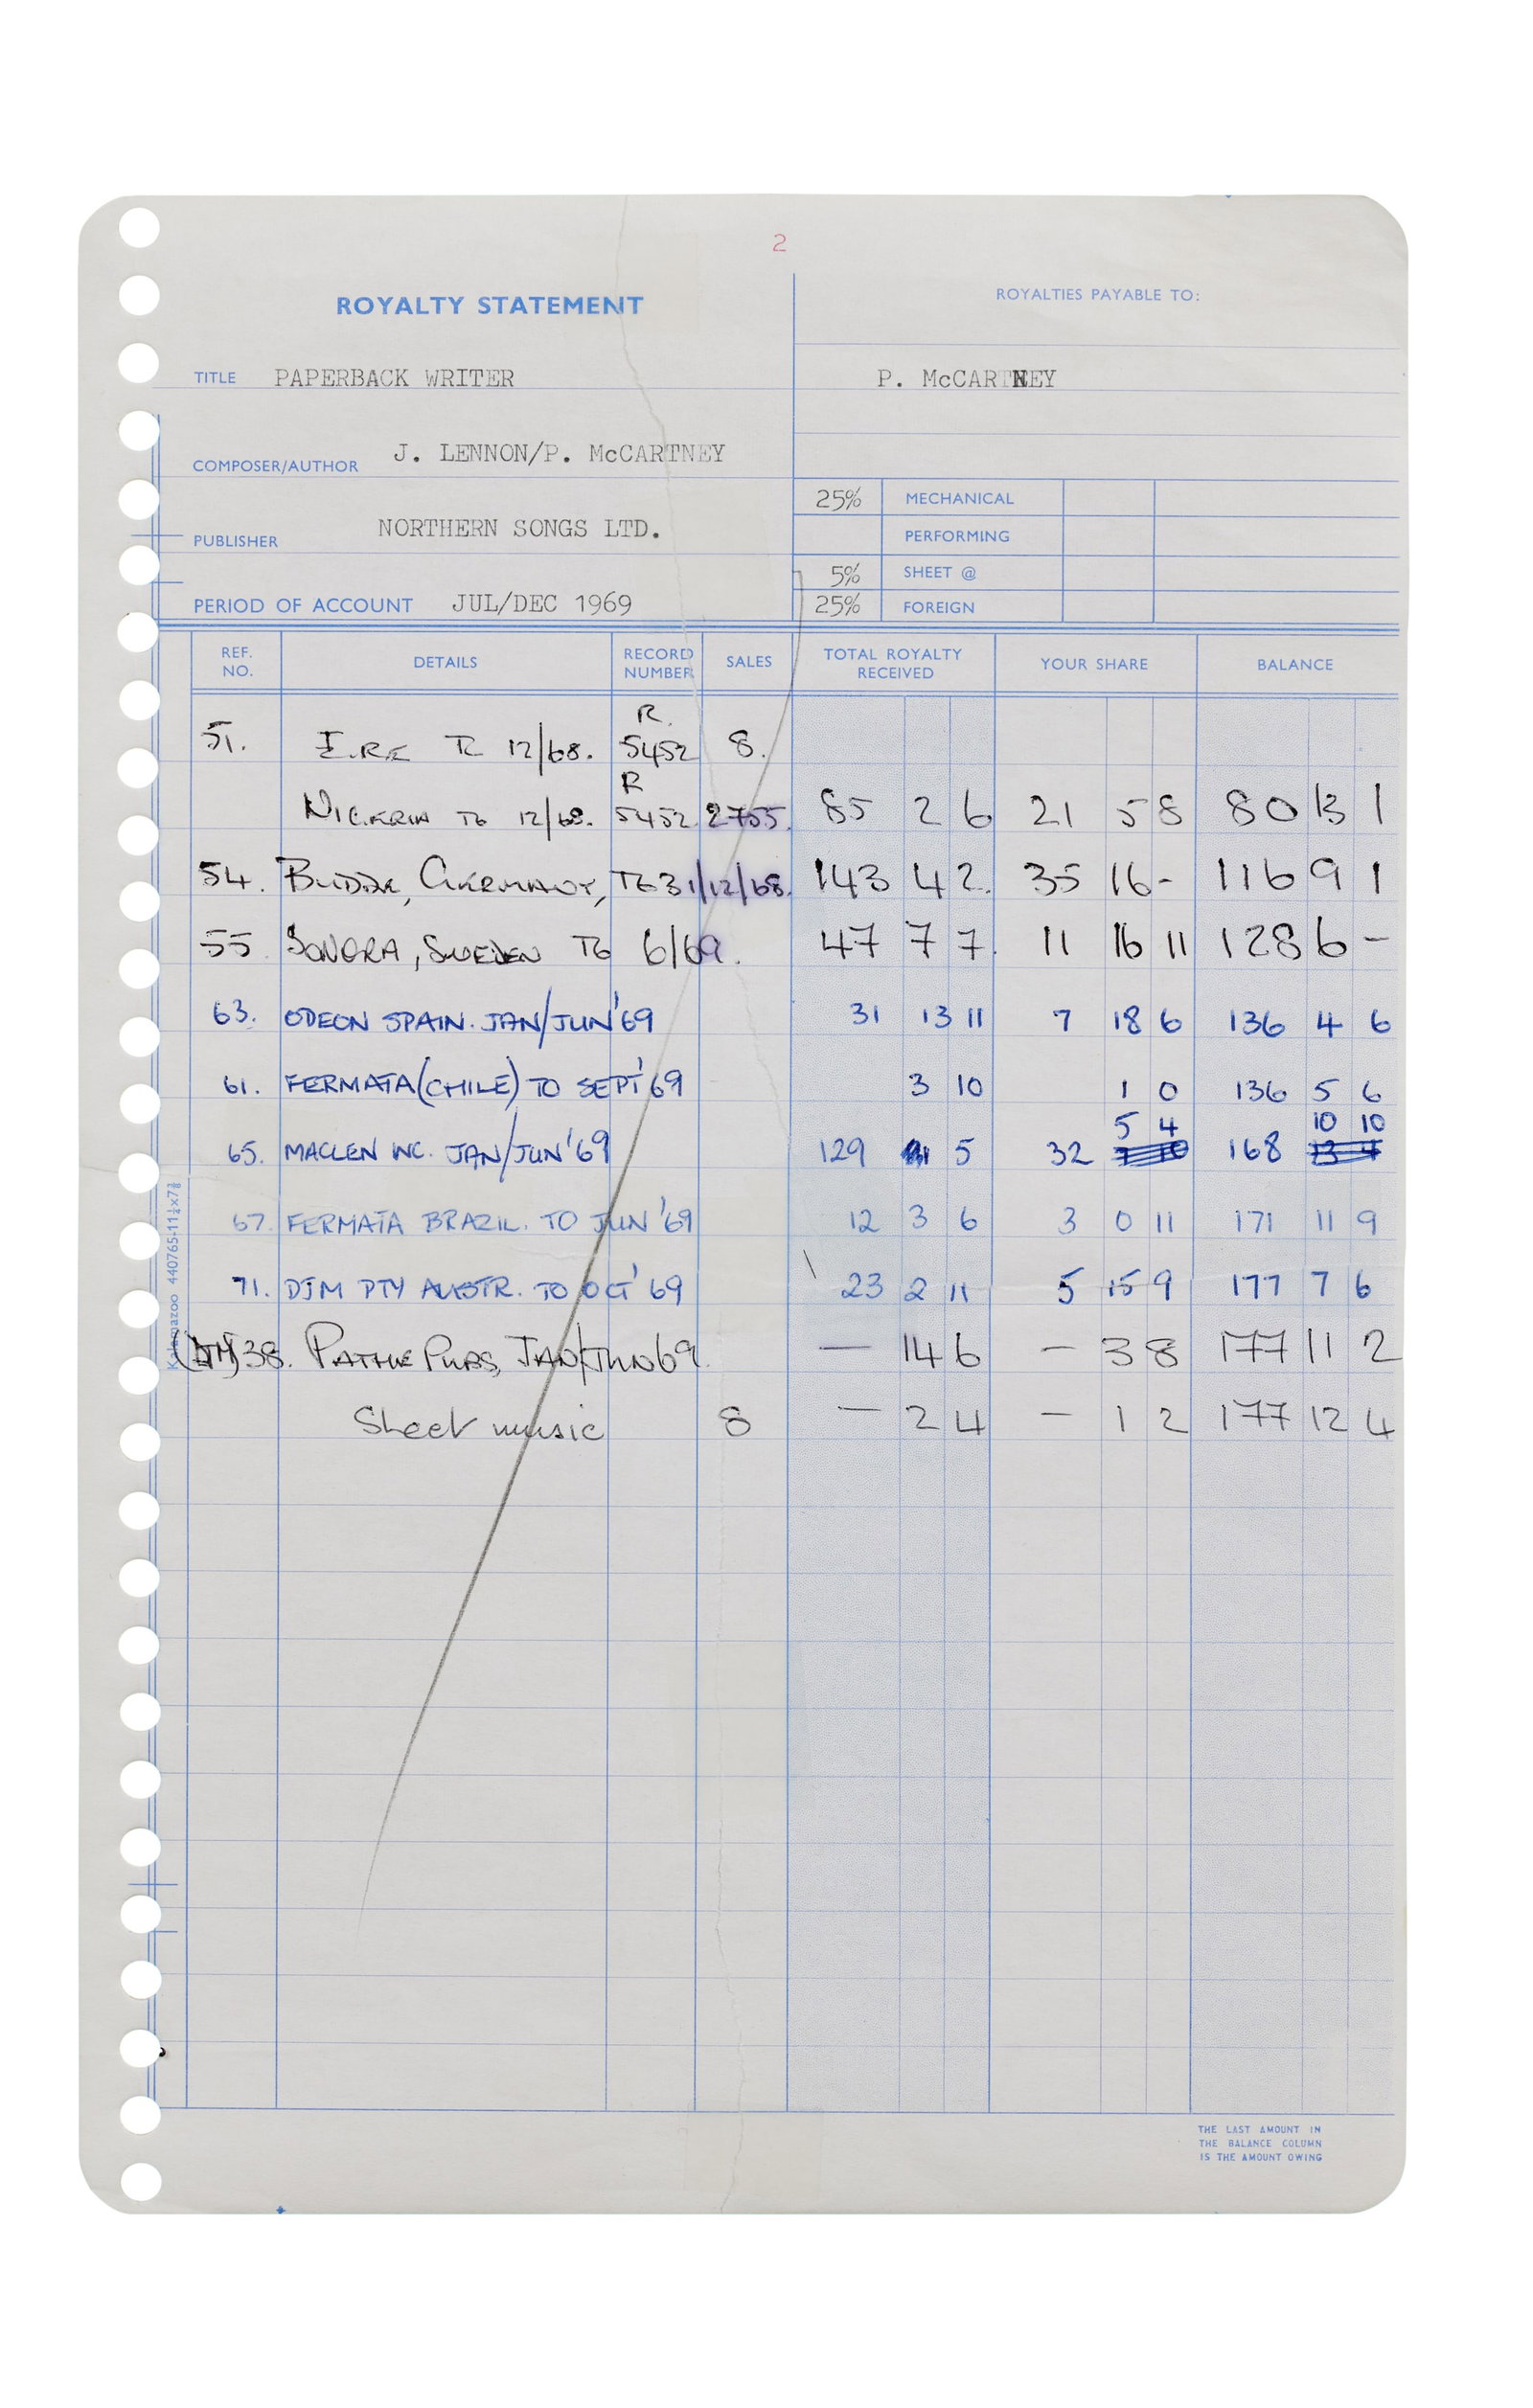 2
ROYALTY STATEMENT
ROYALTIES PAYABLE TO:
TITLE PAPERBACK WRITER
P. McCARTNEY
COMPOSER/AUTHOR J. LENNON/P. McCARTNEY
25% MECHANICAL
PUBLISHER NORTHERN SONGS LTD.
PERFORMING
5% SHEET @
PERIOD OF ACCOUNT JUL/DEC 1969
25% FOREIGN
REF. NO. DETAILS RECORD NUMBER SALES TOTAL ROYALTY RECEIVED YOUR SHARE BALANCE
51. EIRE TO 12/68. R. 5452 8.
NIGERIA TO 12/68. R 5452 2755. 85 2 6 21 5 8 80 13 1
54. BUDDE, GERMANY, TO 31/12/68. 143 4 2. 35 16 - 116 9 1
55 SONORA, SWEDEN TO 6/69. 47 7 7. 11 16 11 128 6 -
63. ODEON SPAIN. JAN/JUN'69 31 13 11 7 18 6 136 4 6
61. FERMATA (CHILE) TO SEPT'69 3 10 1 0 136 5 6
65. MACLEN INC. JAN/JUN'69 129 1 5 32 5 4 168 10 10
67. FERMATA BRAZIL. TO JUN '69 12 3 6 3 0 11 171 11 9
71. DJM PTY AUSTR. TO OCT' 69 23 2 11 5 15 9 177 7 6
38. PATHE PUBS, JAN/JUN 69. — 14 6 — 3 8 177 11 2
Sheet music 8 — 2 4 — 1 2 177 12 4
Kalamazoo 440765-11¼x7⅞
THE LAST AMOUNT IN
THE BALANCE COLUMN
IS THE AMOUNT OWING